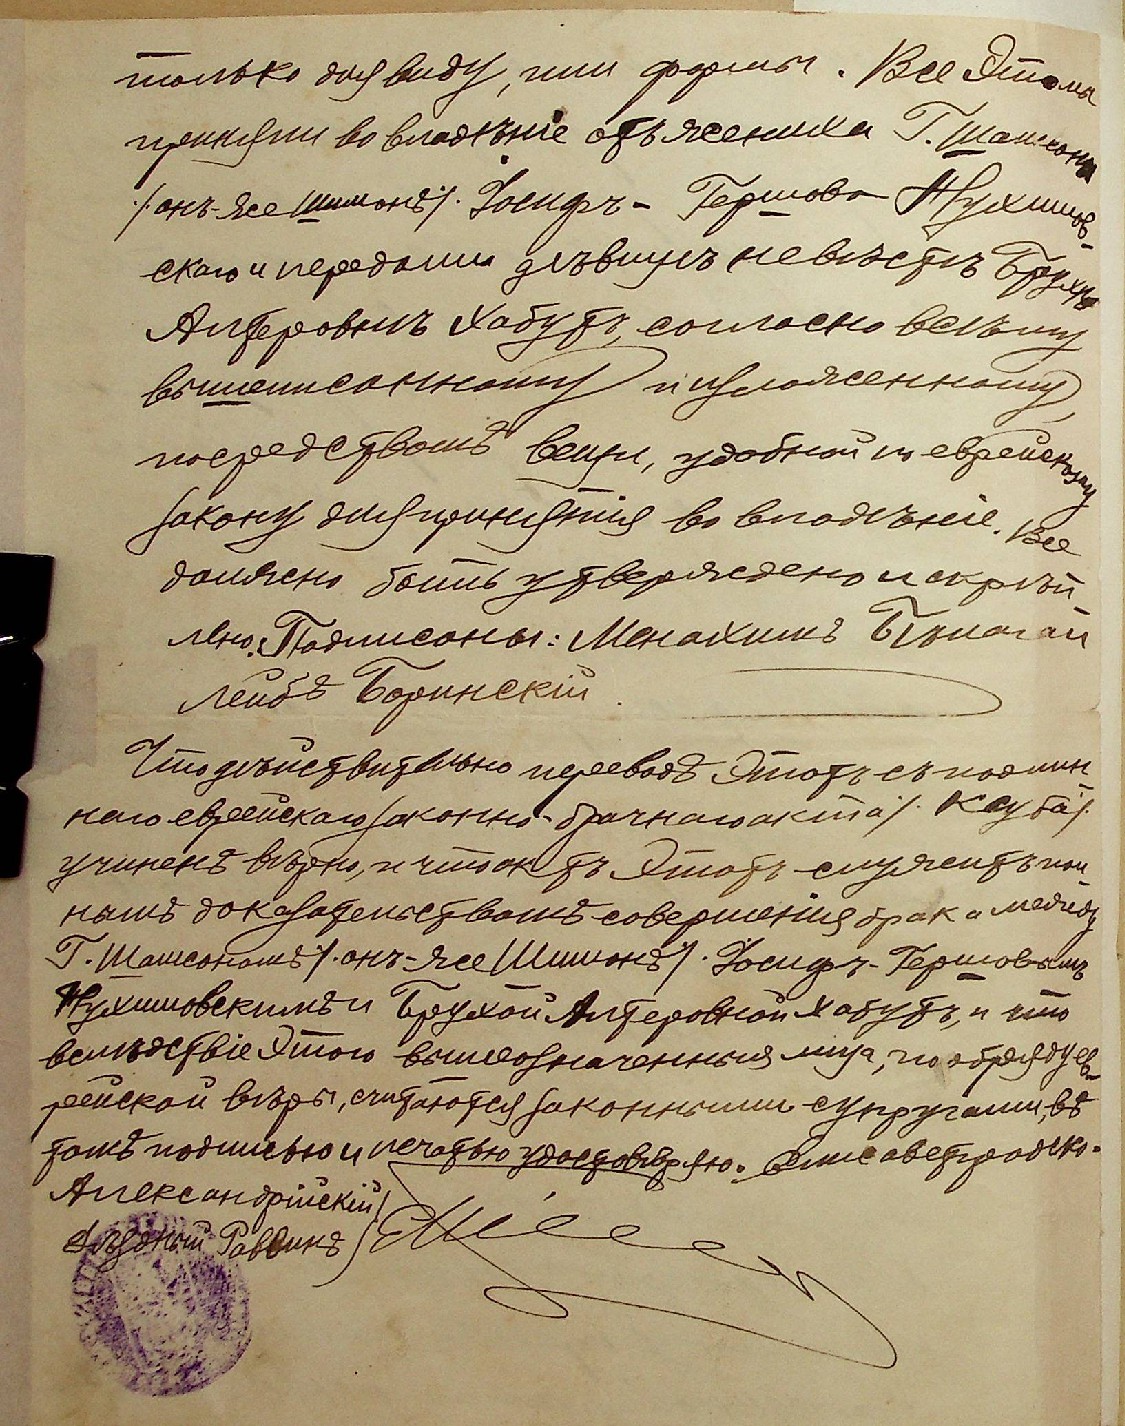 только для виду, или формы. Все Это мы
приняли во владѣніе отъ жениха Г. Шамсона
/. онъ-же Шимонъ/. Іосифъ- Гершова Нухимов-
скаго и передали дѣвицѣ невѣстѣ Брухѣ
Алтеровнѣ Хабутъ, согласно всѣму
вышеписанному и изложенному,
посредствомъ вещи, удобной по еврейскому
закону для принятія во владѣніе. Все
должно быть утверждено и скрѣп
лено. Подписаны: Менахимъ
Лейбъ Боринскій.
Что дѣйствительно переводъ Этотъ съ подлин
наго еврейскаго законно-брачнаго акта /. Ксуба/.
учиненъ вѣрно, и что актъ Этотъ служитъ пол
нымъ доказательствомъ совершенія брака между
Г. Шамсономъ /. онъ-же Шимонъ/. Іосифъ- Гершовымъ
Нухимовскимъ и Брухой Алтеровной Хабутъ, и что
вслѣдствіе Этого вышеозначенныя лица, по обряду ев-
рейской вѣры, считаются законными супругами, въ
томъ подписью и печатью удостовѣряю. Елисаветградско-
Александрійскій
Уѣздный Раввинъ